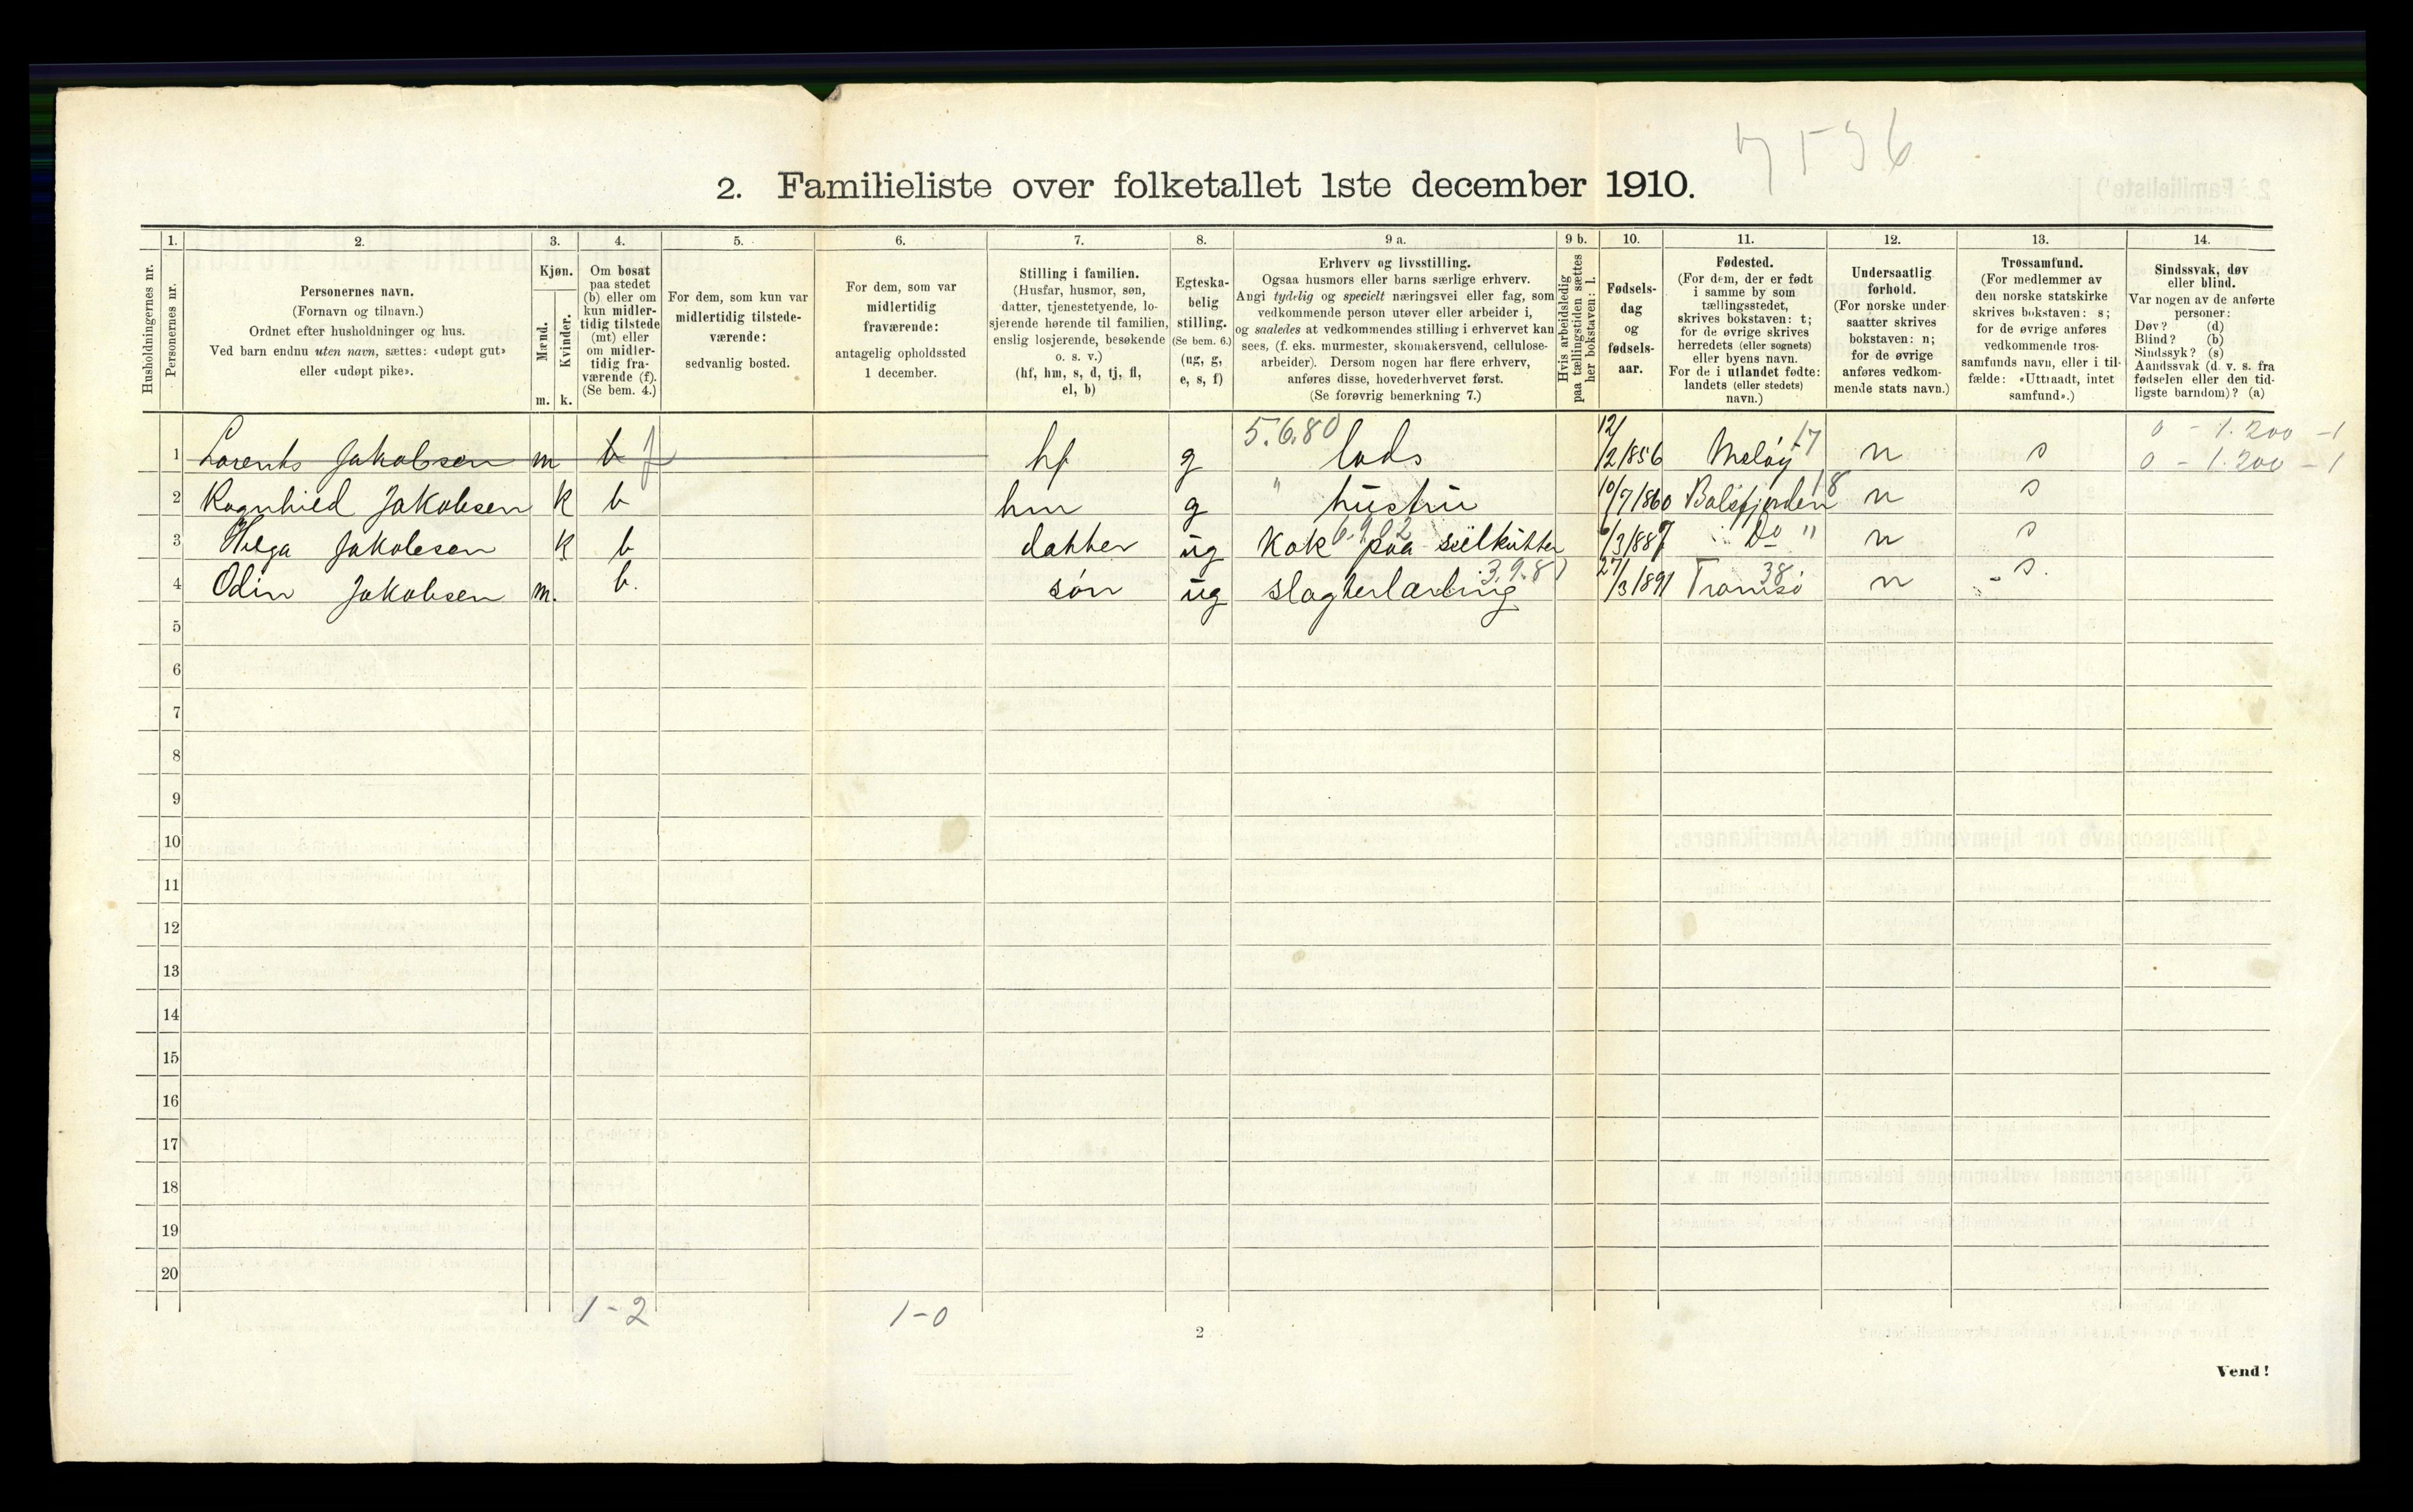 7536
2. Familieliste over folketallet 1ste december 1910.
Husholdningernes nr.
1.
Personernes nr.
2.
Personernes navn.
(Fornavn og tilnavn.)
Ordnet efter husholdninger og hus.
Ved barn endnu uten navn, sættes: «udøpt gut»
eller «udøpt pike».
3.
Kjøn.
Mænd.
Kvinder.
m. k.
4.
Om bosat
paa stedet
(b) eller om
kun midler-
tidig tilstede
(mt) eller
om midler-
tidig fra-
værende (f).
(Se bem. 4.)
5.
For dem, som kun var
midlertidig tilstede-
værende:
sedvanlig bosted.
6.
For dem, som var
midlertidig
fraværende:
antagelig opholdssted
1 december.
7.
Stilling i familien.
(Husfar, husmor, søn,
datter, tjenestetyende, lo-
sjerende hørende til familien,
enslig losjerende, besøkende
o. s. v.)
(hf, hm, s, d, tj, fl,
el, b)
8.
Egteska-
belig
stilling.
(Se bem. 6.)
(ug, g,
e, s, f)
9 a.
Erhverv og livsstilling.
Ogsaa husmors eller barns særlige erhverv.
Angi tydelig og specielt næringsvei eller fag, som
vedkommende person utøver eller arbeider i,
og saaledes at vedkommendes stilling i erhvervet kan
sees, (f. eks. murmester, skomakersvend, cellulose-
arbeider). Dersom nogen har flere erhverv,
anføres disse, hovederhvervet først.
(Se forøvrig bemerkning 7.)
9 b.
Hvis arbeidsledig
paa tællingstiden sættes
her bokstaven: l.
10.
Fødsels-
dag
og
fødsels-
aar.
11.
Fødested.
(For dem, der er født
i samme by som
tællingsstedet,
skrives bokstaven: t;
for de øvrige skrives
herredets (eller sognets)
eller byens navn.
For de i utlandet fødte:
landets (eller stedets)
navn.)
12.
Undersaatlig
forhold.
(For norske under-
saatter skrives
bokstaven: n;
for de øvrige
anføres vedkom-
mende stats navn.)
13.
Trossamfund.
(For medlemmer av
den norske statskirke
skrives bokstaven: s;
for de øvrige anføres
vedkommende tros-
samfunds navn, eller i til-
fælde: «Uttraadt, intet
samfund».)
14.
Sindssvak, døv
eller blind.
Var nogen av de anførte
personer:
Døv? (d)
Blind? (b)
Sindssyk? (s)
Aandssvak (d. v. s. fra
fødselen eller den tid-
ligste barndom)? (a)
5.6.80 17 0 - 1.200 -1
1 Lorents Jakobsen m b f hf g lods 12/2 1856 Meløy n s 0 - 1.200 - 1
18
2 Ragnhild Jakobsen k b hm g " hustru 10/7 1860 Balsfjorden n s
6.9.02
3 Helga Jakobsen k b datter ug Kok paa seilkutter 6/3 1887 Do " n s
3.9.8 38
4 Odin Jakobsen m. b. søn ug slagterlærling 27/3 1891 Tromsø n - s.
5
6
7
8
9
10
11
12
13
14
15
16
17
18
19
20
1-2 1-0
2
Vend!